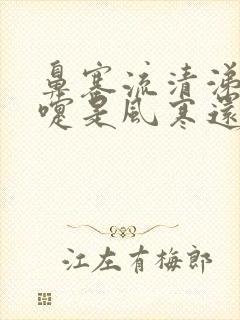 鼻塞流清涕
嚏是風寒還
江左有梅郎